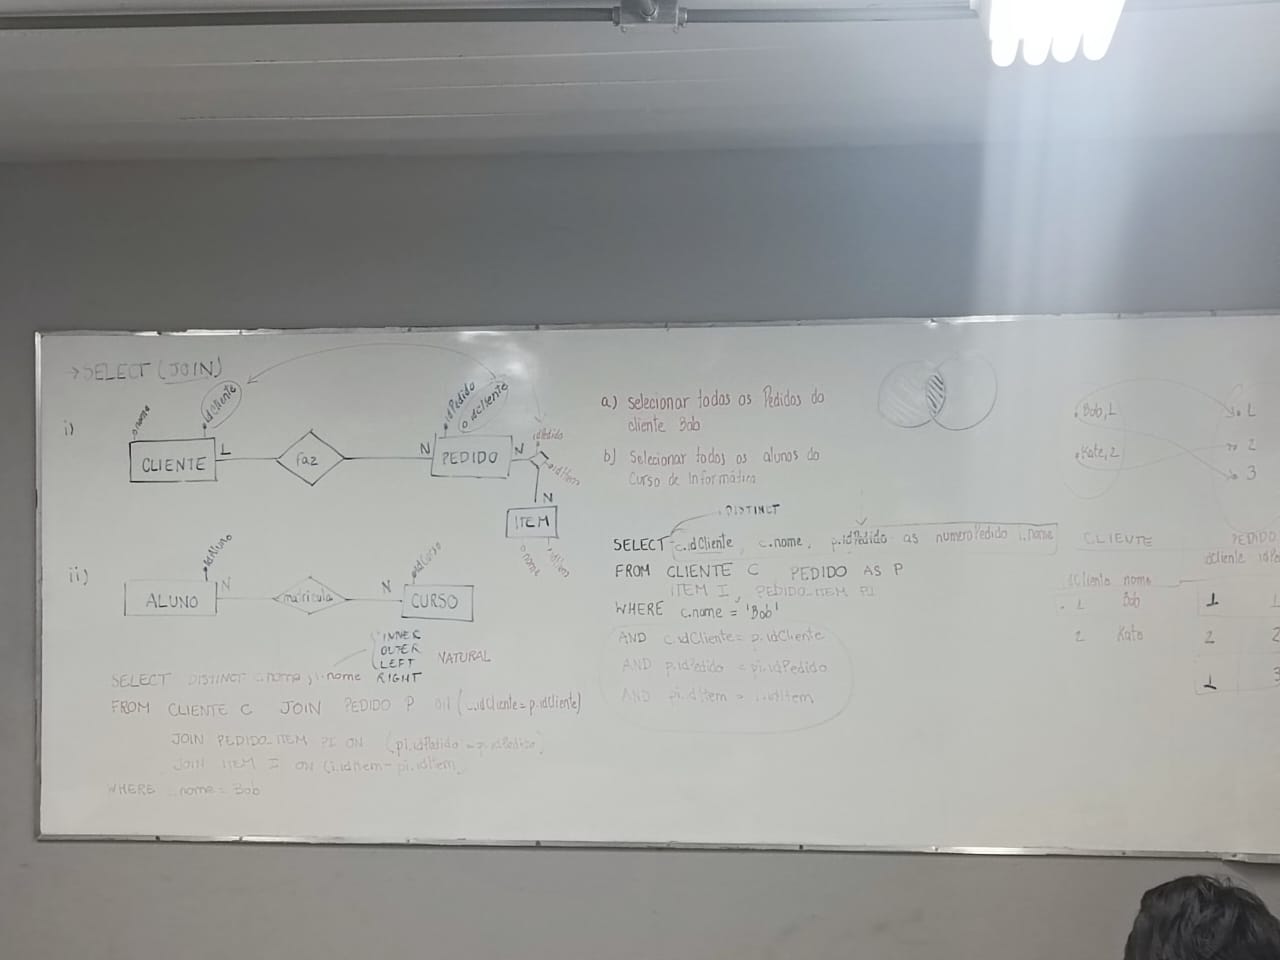 →SELECT (JOIN)
i)
nome
idCliente
CLIENTE
L
faz
N
PEDIDO
idPedido
idCliente
N
idPedido
idItem
N
ITEM
nome
idItem
ii)
idAluno
ALUNO
N
matricula
N
idCurso
CURSO
INNER
OUTER
LEFT
RIGHT
NATURAL
SELECT DISTINCT c.nome, i.nome
FROM CLIENTE C JOIN PEDIDO P ON (c.idCliente=p.idCliente)
JOIN PEDIDO_ITEM PI ON (pi.idPedido = p.idPedido)
JOIN ITEM I ON (i.idItem=pi.idItem
WHERE c.nome = Bob
a) Selecionar todos os Pedidos do
cliente Bob
b) Selecionar todos os alunos do
Curso de Informática
DISTINCT
SELECT c.idCliente, c.nome, p.idPedido as numeroPedido i.nome
FROM CLIENTE C PEDIDO AS P
ITEM I, PEDIDO_ITEM PI
WHERE c.nome = 'Bob'
AND c.idCliente = p.idCliente
AND p.idPedido = pi.idPedido
AND pi.idItem = i.idItem
.Bob,1
.Kate,2
1
2
3
CLIENTE
idCliente nome
1 Bob
2 Kate
PEDIDO
idCliente
1
2 2
1 3